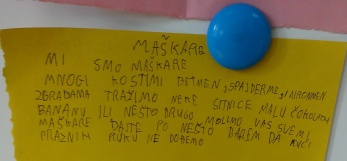 MAŠKARE
MI SMO MAŠKARE
MNOGI KOSTIMI BETMEN, SPAJDERMEN, AJRONMEN
ZGRADAMA TRAŽIMO NEKE SITNICE MALU ČOKOLADU
BANANU ILI NEŠTO DRUGO MOLIMO VAS SVE MI
MAŠKARE DAJTE PO NEŠTO BAREM DA KUĆI
PRAZNIH RUKU NE DOĐEMO